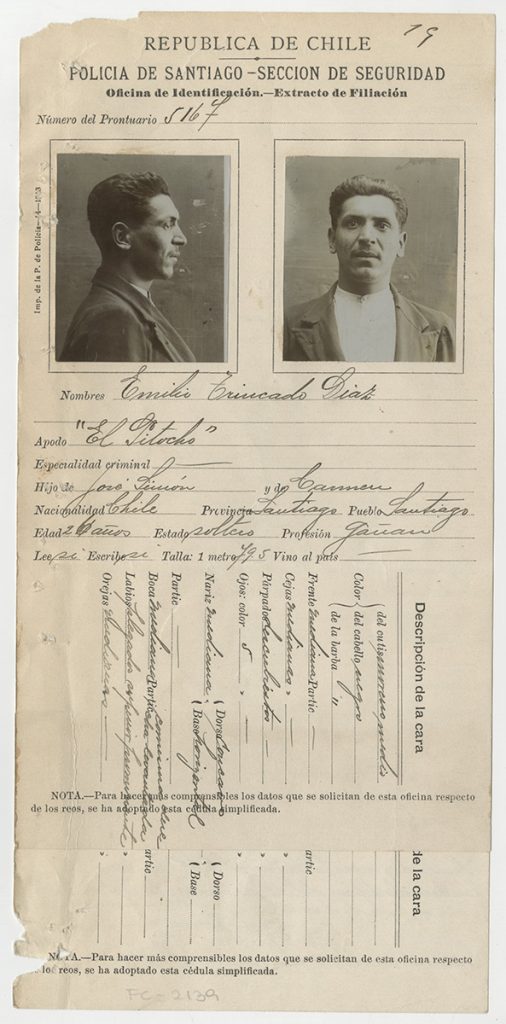 19
REPUBLICA DE CHILE
POLICIA DE SANTIAGO-SECCION DE SEGURIDAD
Oficina de Identificación.—Extracto de Filiación
Número del Prontuario 5167
Imp. de la P. de Policía
Nombres Emilio Trincado Diaz
Apodo "El Pitocho"
Especialidad criminal —
Hijo de José Simón y de Carmen
Nacionalidad Chile Provincia Santiago Pueblo Santiago
Edad 26 años Estado soltero Profesión Gañan
Lee si Escribe si Talla: 1 metro 795 Vino al país —
Descripción de la cara
Color { del cutis moreno
del cabello negro
de la barba "
Frente mediana Partic —
Cejas medianas »
Párpados descubiertos —
Ojos: color 5 »
Nariz mediana { Dorso
Base horizontal
Partic —
Boca mediana Partic comisura
Labios delgado superior
Orejas medianas —
NOTA.—Para hacer más comprensibles los datos que se solicitan de esta oficina respecto
de los reos, se ha adoptado esta cédula simplificada.
de la cara
artic
»
»
{ Dorso
Base
artic
»
NOTA.—Para hacer más comprensibles los datos que se solicitan de esta oficina respecto
los reos, se ha adoptado esta cédula simplificada.
FC-2139